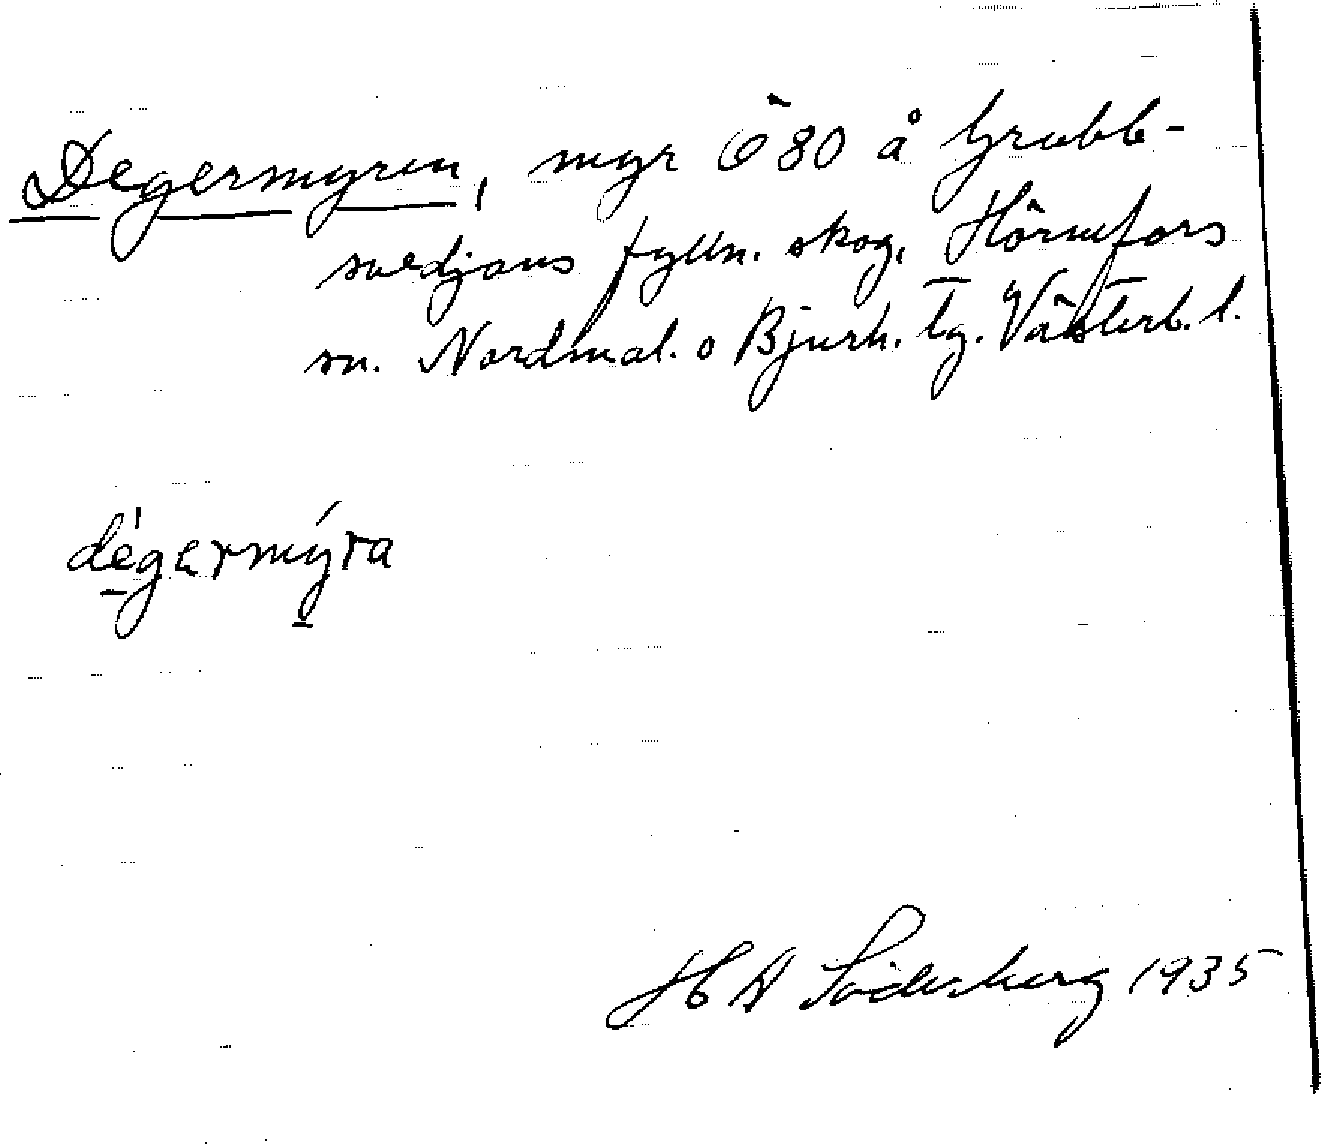 Degermyren, myr Ö 80 å Grubb-
svedjans fylln. skog, Hörnefors
sn. Nordmal. o Bjurh. tg. Västerb. l.
dégermýra
H A Söderberg 1935